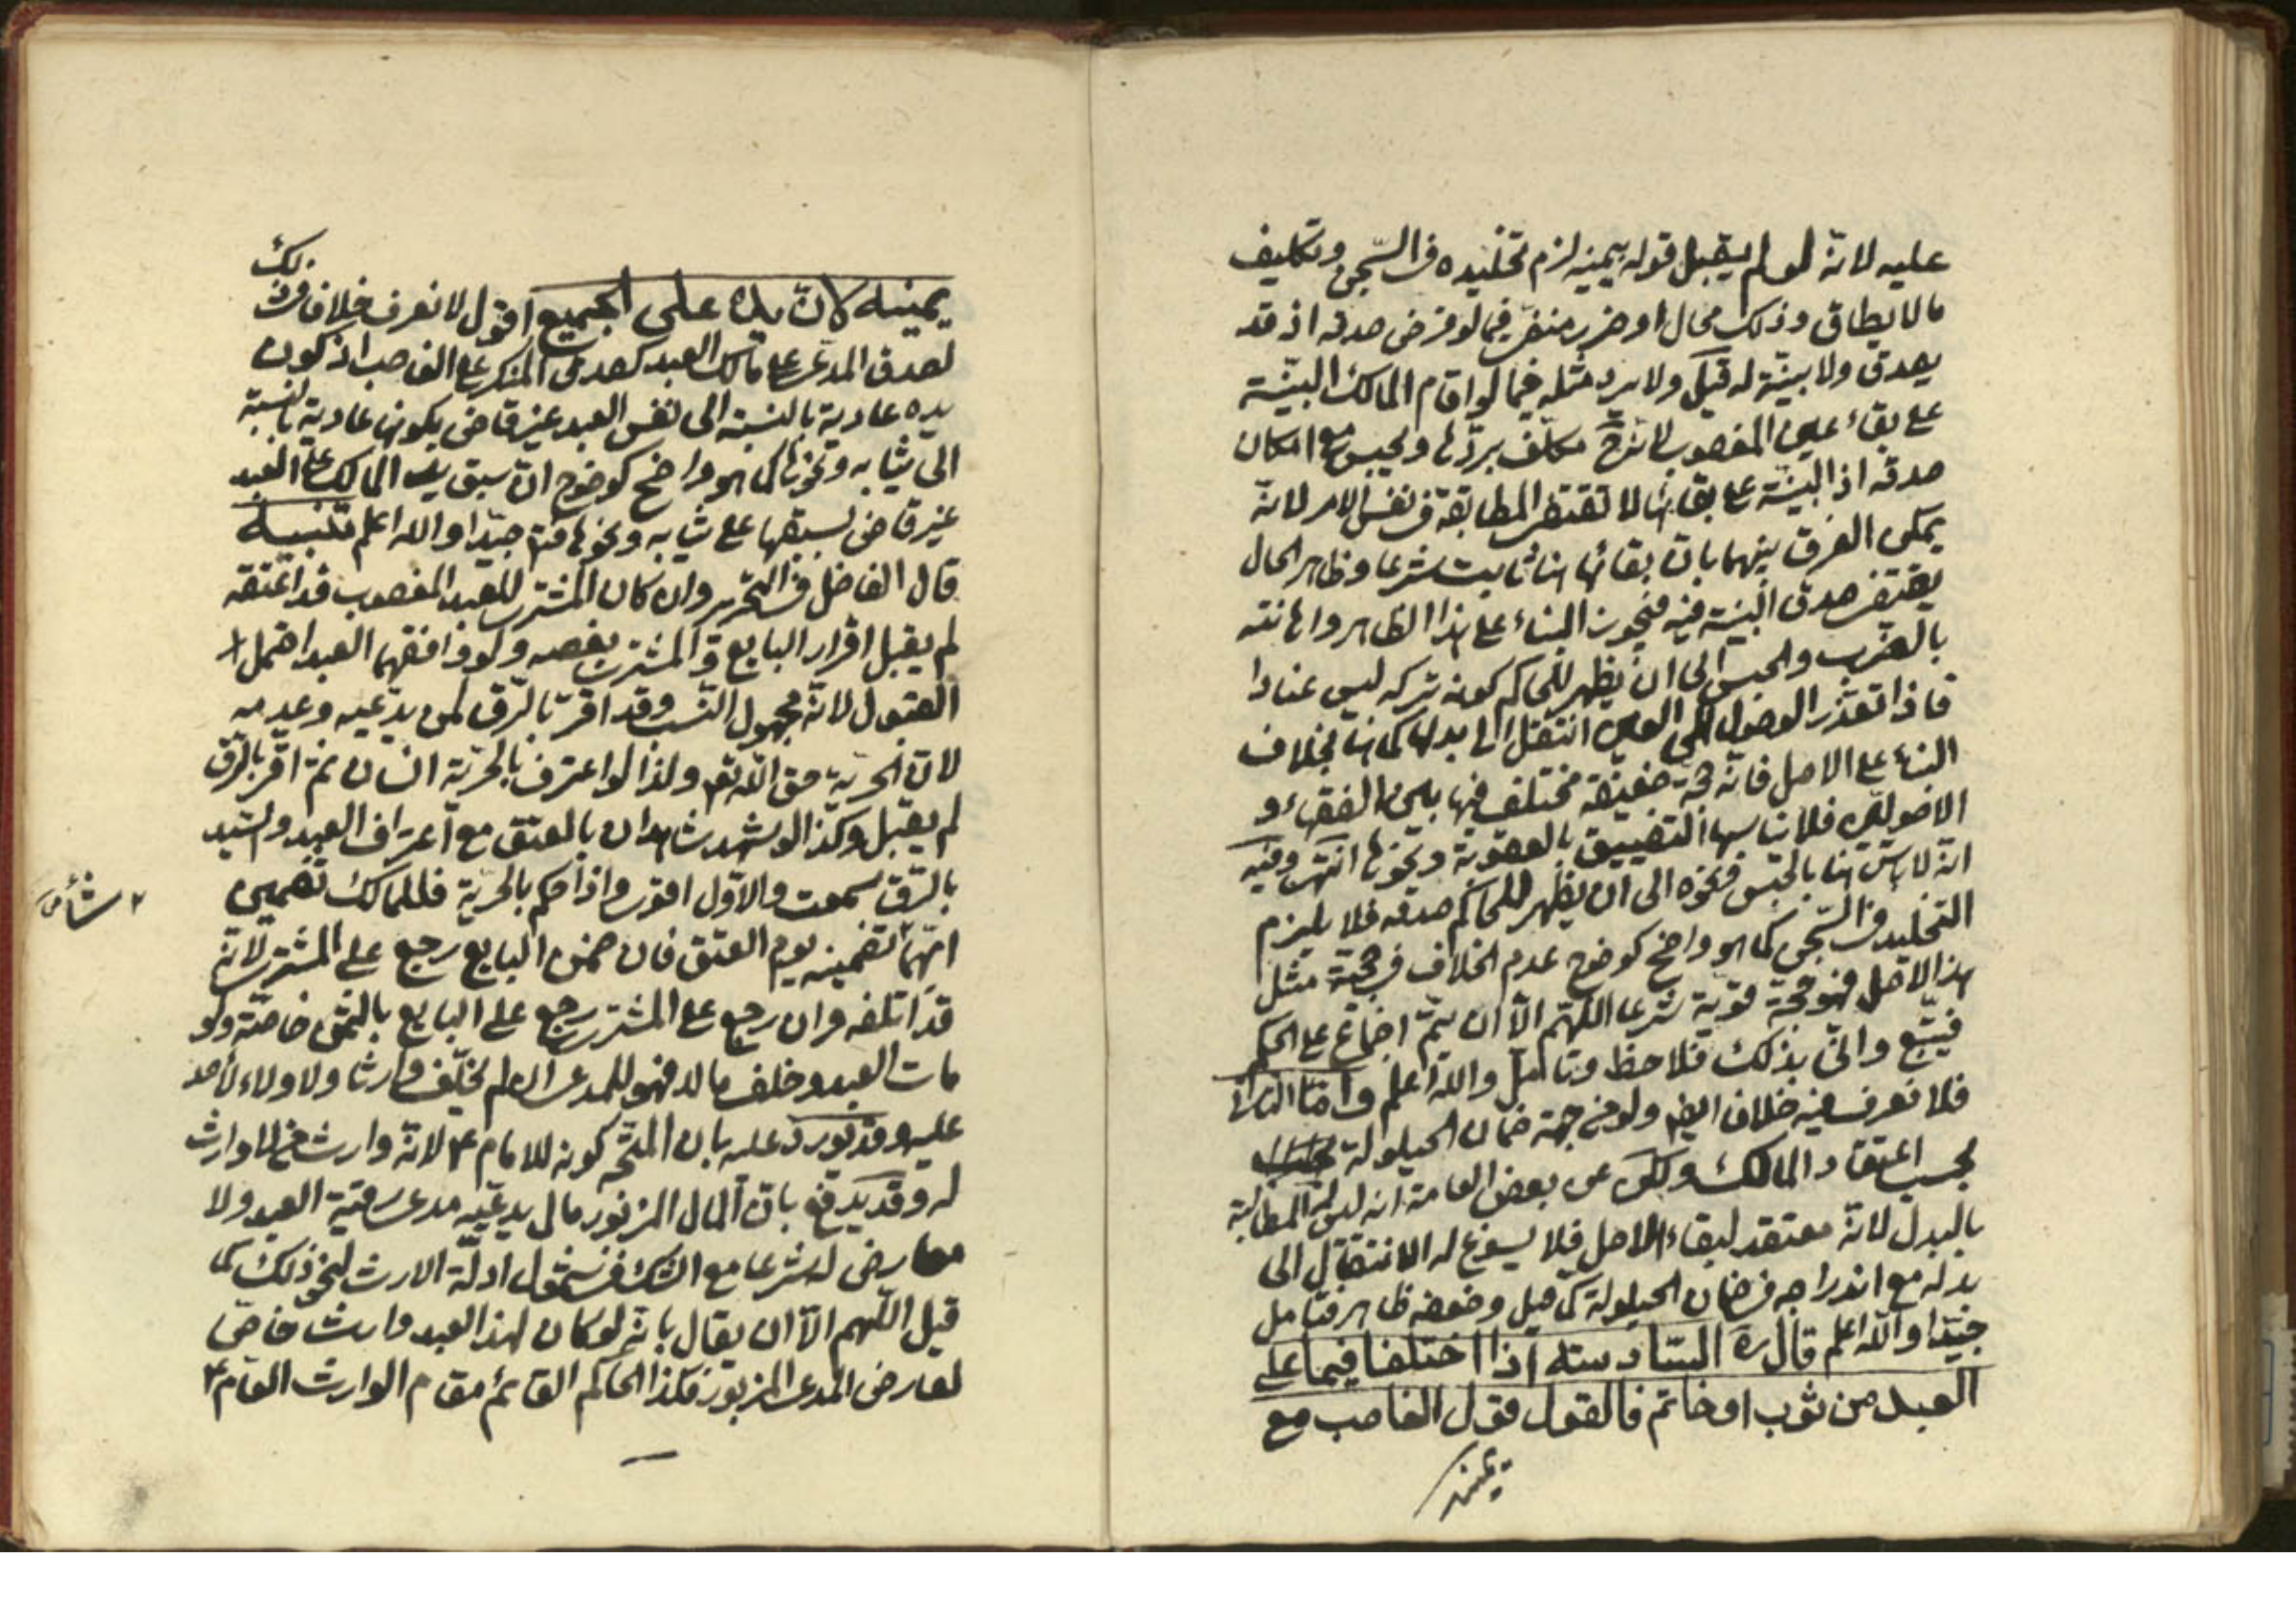 عليه لانّه لو لم يقبل قوله بيمينه لزم تخليده فى السّجن وتكليف
ما لا يطاق وذلك محال او ضرر منفى فيما لو فرض صدقه اذ قد
يصدق ولا بيّنة له قيل ولا يرد مثله فيما لو اقام المالك البيّنة
على بقاء عين المغصوب لانّه ح مكلّف بردّها ويحبس مع امكان
صدقه اذ البيّنة على بقائها لا تقتضى المطابقة فى نفس الامر لانّه
يمكن الفرق بينهما بانّ بقائها هنا ثابت شرعا وظاهر الحال
يقتضى صدق البيّنة فيه فيجوز البناء على هذا الظاهر واهانته
بالضرب والحبس الى ان يظهر للحاكم كون تركه ليس عنادا
فاذا تعذّر الوصول الى العين انتقل الى بدلها كما هنا بخلاف
البناء على الاصل فانّه حجّة ضعيفة مختلف فيها بين الفقهاء و
الاصوليّين فلا يناسبها التضييق بالعقوبة ونحوها انتهى وفيه
انّه لا باس هنا بالحبس ونحوه الى ان يظهر للحاكم صدقه فلا يلزم
التخليد فى السّجن كما هو واضح كوضوح عدم الخلاف فى حجّية مثل
هذا الاصل فهو حجّة قويّة شرعا اللّهمّ الّا ان يتمّ اجماع على الحكم
فيتّبع وانّى بذلك فلاحظ وتامّل واللّه اعلم وامّا الثانى
فلا نعرف فيه خلافا ايضا ولو من جهة ضمان الحيلولة
بحسب اعتقاد المالك ولكن عن بعض العامة انه ليس له المطالبة
بالبدل لانّه معتقد لبقاء الاصل فلا يسوغ له الانتقال الى
بدله مع اندراجه فى ضمان الحيلولة كما قيل وضعفه ظاهر فتامل
جيّدا واللّه اعلم قال ره السّادسة اذا اختلفا فيما على
العبد من ثوب او خاتم فالقول قول الغاصب مع
يمينه
يمينه لانّ يده على الجميع اقول لا نعرف خلافا فى ذلك
لصدق المدّعى على مالك العبد كصدق المنكر على الغاصب اذ كون
يده عادية بالنسبة الى نفس العبد غير قاض بكونها عادية بالنسبة
الى ثيابه ونحوها كما هو واضح كوضوح انّ سبق يد المالك على العبد
غير قاض لسبقها على ثيابه ونحوها فتامل جيّدا واللّه اعلم تنبيه
قال الفاضل فى التحرير وان كان المشترى للعبد المغصوب قد اعتقه
لم يقبل اقرار البايع والمشترى بغصبه ولو وافقهما العبد احتمل
القبول لانّه مجهول النّسب وقد اقرّ بالرّق لمن يدّعيه وعدمه
لانّ الحريّة حق اللّه تعالى ولذا لو اعترف بالحرّية انسان ثم اقرّ بالرّق
لم يقبل وكذا لو شهد شاهدان بالعتق مع اعتراف العبد والسّيد
بالرّق سمعت والاوّل اقوى واذا حكم بالحرّية فللمالك تضمين
ايّهما شاء تضمينه يوم العتق فان ضمن البايع رجع على المشترى لانّه
قد اتلفه وان رجع على المشترى رجع على البايع بالثمن خاصّة ولو
مات العبد وخلف مالا فهو للمدعى ان لم يخلّف وارثا ولا ولاء لأحد
عليه وقد يورد عليه بان المتّجه كونه للامام ع لانّه وارث من لا وارث
له وقد يدفع بانّ المال المزبور مال يدعيه مدعى رقّية العبد ولا
معارض له شرعا مع الشك فى شمول ادلّة الارث لنحو ذلك كما
قيل اللّهم الّا ان يقال بانّه لو كان لهذا العبد وارث خاصّ
لعارض المدعى المزبور فكذا الحاكم القائم مقام الوارث العام ع